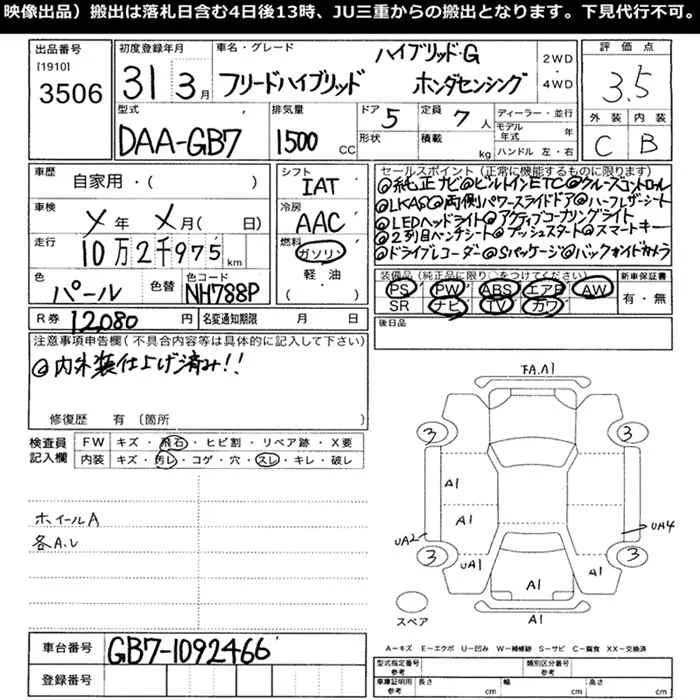 映像出品）搬出は落札日含む4日後13時、JU三重からの搬出となります。下見代行不可。
出品番号
[1910]
3506
初度登録年月
31 3月
車名・グレード
ハイブリッド・G
フリードハイブリッド ホンダセンシング
2WD
・
4WD
評価点
3.5
外装 内装
C B
型式
DAA-GB7
排気量
1500 CC
ドア 5
形状
定員 7 人
積載 kg
ディーラー・並行
モデル年式 年
ハンドル 左・右
車歴
自家用・( )
車検
メ年 メ月( 日)
走行
10万2千975km
色
パール
色替
色コード
NH788P
シフト
IAT
冷房
AAC
燃料
ガソリン
軽・油
( )
セールスポイント（正常に機能するものに限ります）
@純正ナビ@ビルトインETC@クルーズコントロール
@LKAS@両側パワースライドドア@ハーフレザーシート
@LEDヘッドライト@アクティブコーナリングライト
@2列目ベンチシート@プッシュスタート@スマートキー
@ドライブレコーダー@Sパッケージ@バックガイドカメラ
装備品（純正品に限り○をつけてください）
PS PW ABS エアB AW
SR ナビ TV カワ
新車保証書
有・無
後日品
R券 12,080 円
名変通知期限 月 日
注意事項申告欄（不具合内容等は具体的に記入して下さい）
@内外装仕上げ済み!!
修復歴 有（箇所
検査員記入欄
FW キズ・飛石・ヒビ割・リペア跡・X要
内装 キズ・汚レ・コゲ・穴・スレ・キレ・破レ
ホイールA
各A.U
FA.A1
3 3
A1
A1
UA2 UA4
3 3
UA1 A1 A1
A1
スペア
A=キズ E=エクボ U=凹み W=補修跡 S=サビ C=腐食 XX=交換済
車台番号 GB7-1092466
登録番号
型式指定番号 参考
類別区分番号 参考
車庫証明用 参考
長さ cm 幅 cm 高さ cm